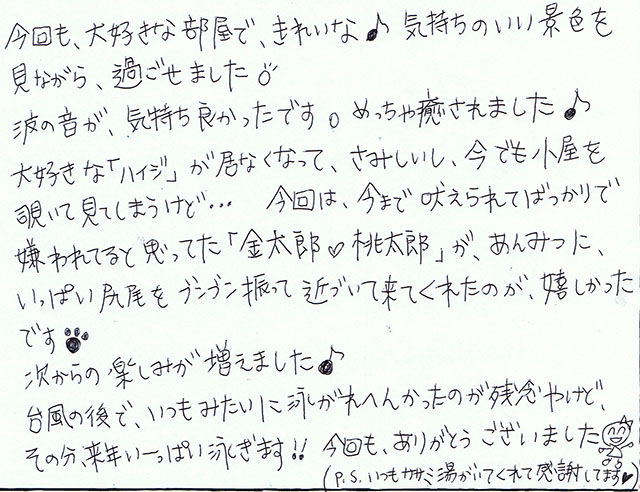 今回も、大好きな部屋で、きれいな♪ 気持ちのいい景色を
見ながら、過ごせました
波の音が、気持ち良かったです。めっちゃ癒されました♪
大好きな「ハイジ」が居なくなって、さみしいし、今でも小屋を
覗いて見てしまうけど… 今回は、今まで吠えられてばっかりで
嫌われてると思ってた「金太郎♡桃太郎」が、あんみつに、
いっぱい尻尾をブンブン振って近づいて来てくれたのが、嬉しかった
です
次からの楽しみが増えました♪
台風の後で、いつもみたいに泳がれへんかったのが残念やけど、
その分、来年いーっぱい泳ぎます!! 今回も、ありがとうございました
(P.S. いつも 湯がいてくれて感謝してます♥